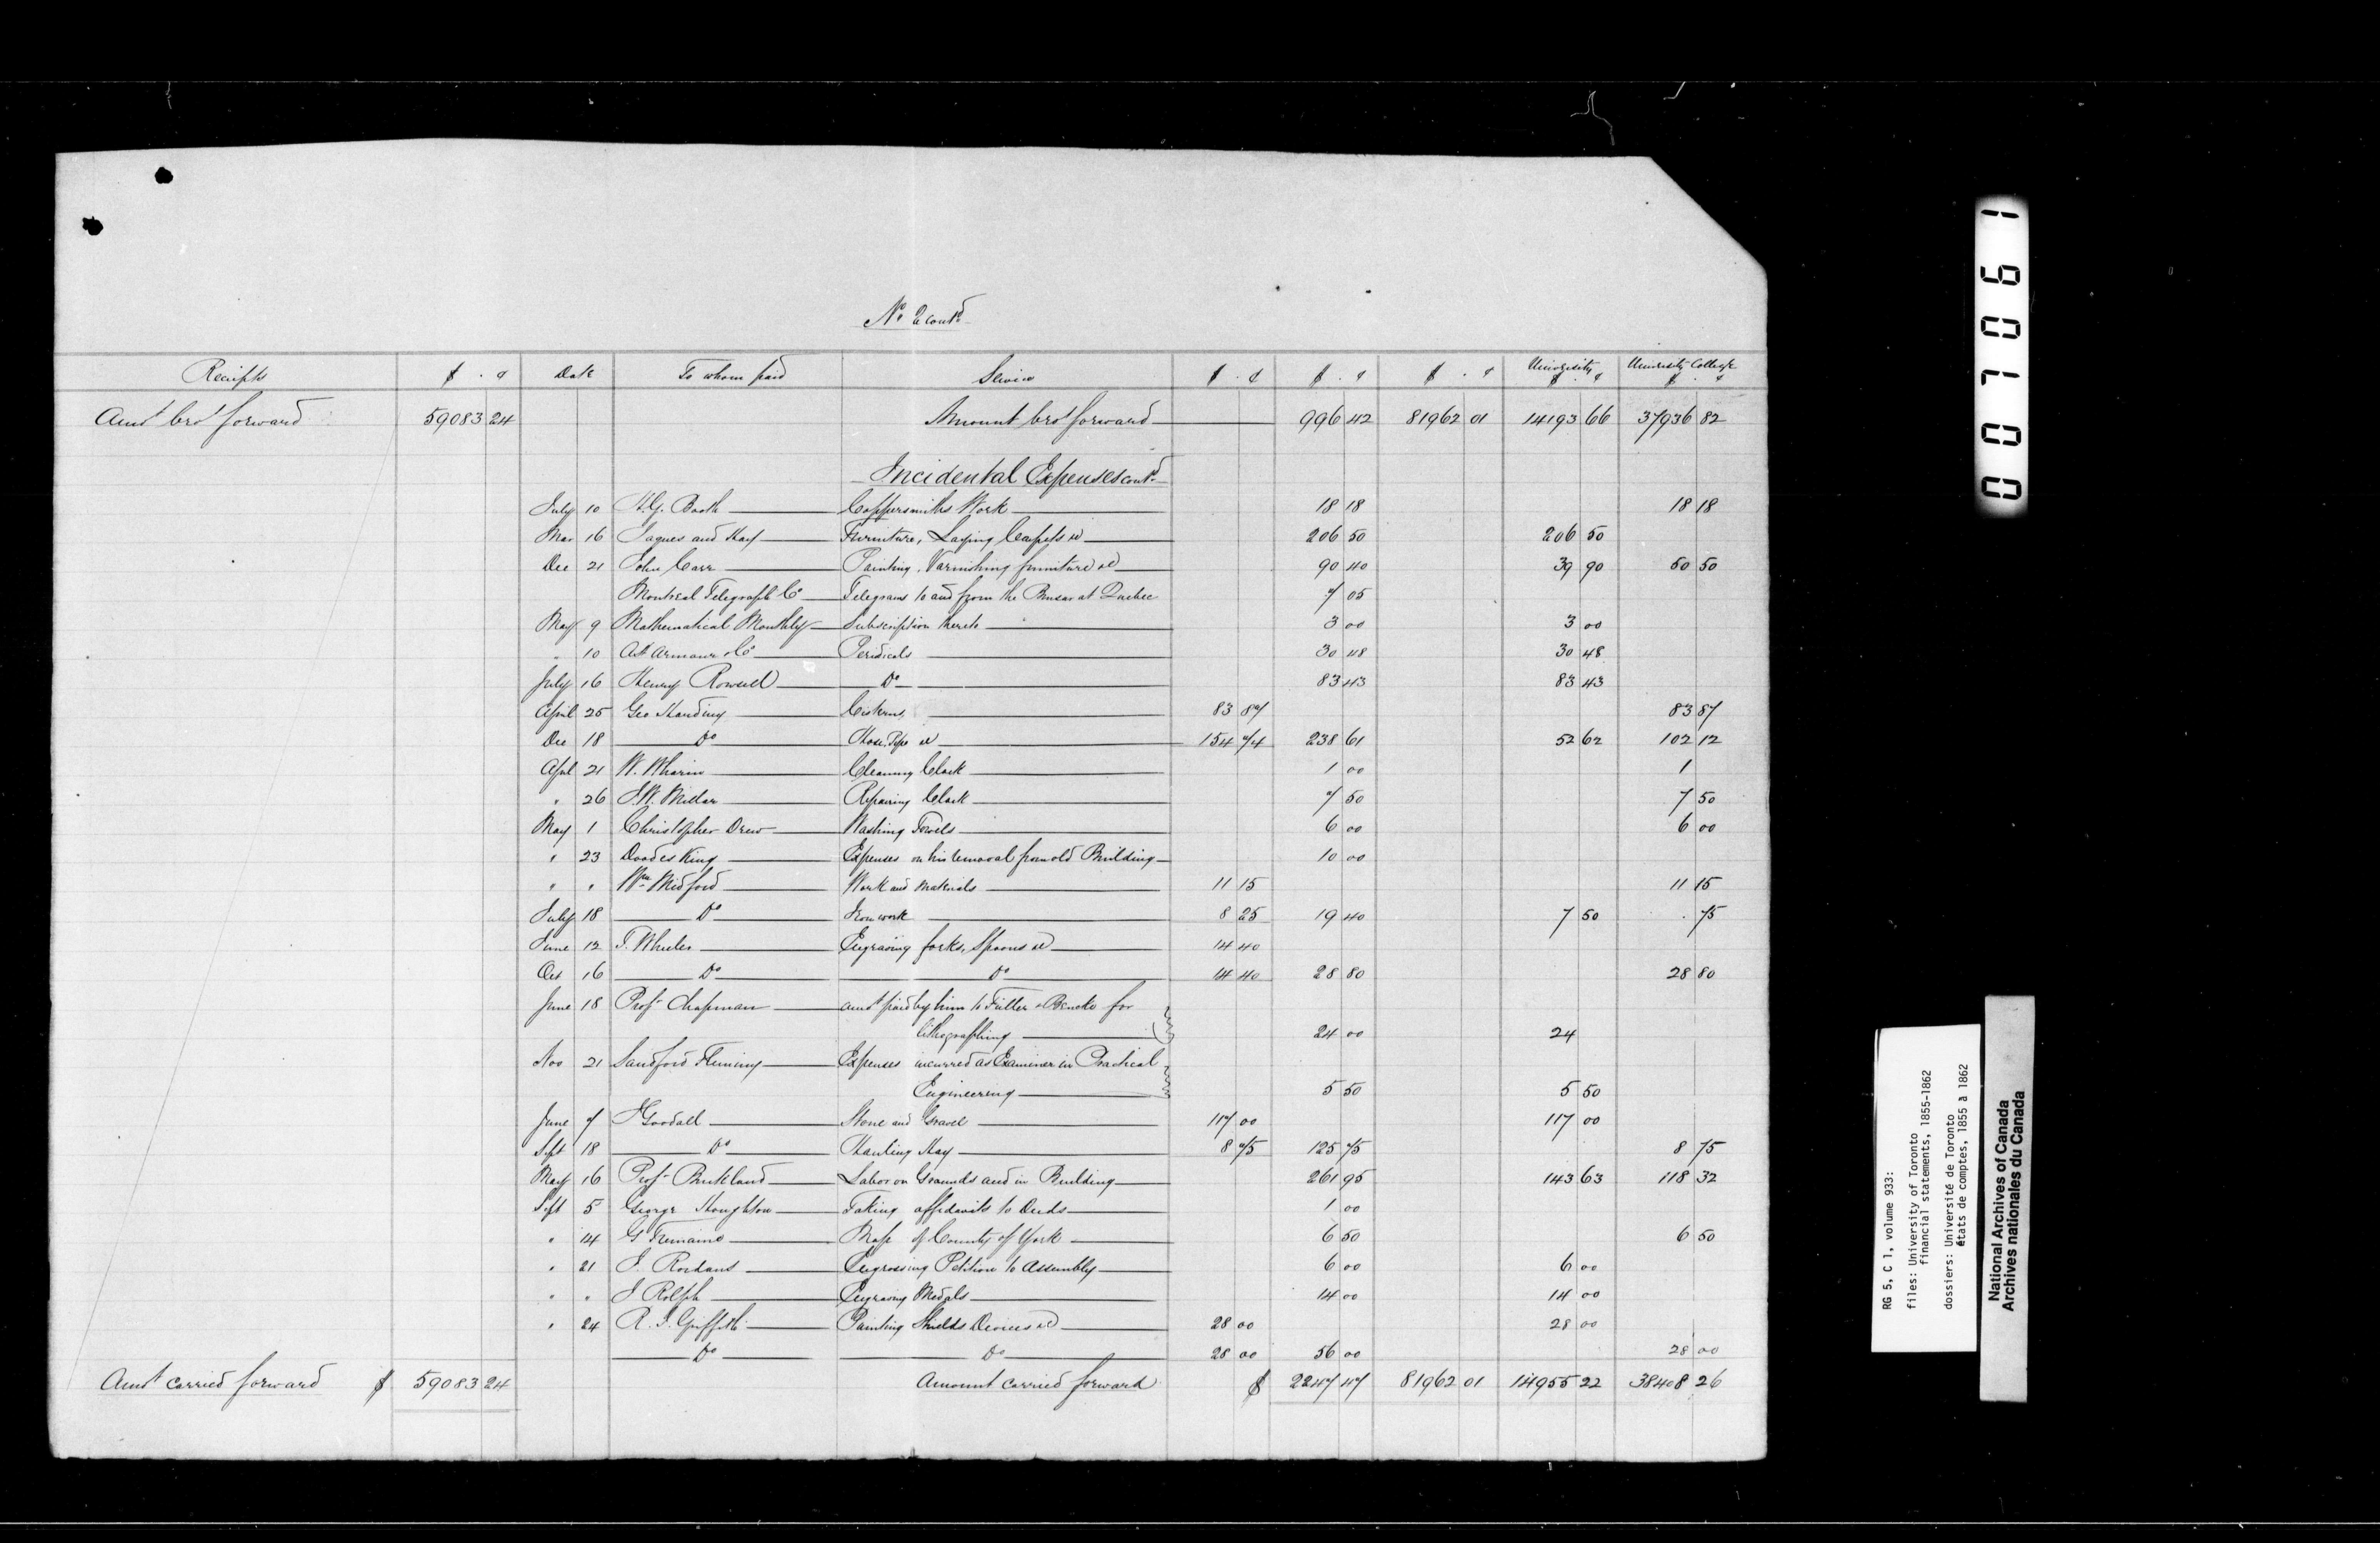 No. 2 contd
Receipts $ . ¢ Date To whom paid Service $ . ¢ $ . ¢ $ . ¢ University $ . ¢ University College $ . ¢
Amt brot forward 59083 24 Amount brot forward 996 42 81962 01 14193 66 37936 82
Incidental Expenses contd
July 10 H.G. Booth Coppersmiths Work 18 18 18 18
Mar 16 Jaques and Hay Furniture, Laying Carpets &c 206 50 206 50
Dec 21 John Carr Painting, Varnishing furniture &c 90 40 39 90 50 50
Montreal Telegraph Co Telegrams to and from the Bursar at Quebec 7 05
May 9 Mathematical Monthly Subscription thereto 3 00 3 00
" 10 Armour & Co Peridicals 30 48 30 48
July 16 Henry Rowsell Do 83 43 83 43
April 25 Geo Harding Cisterns 83 87 83 87
Dec 18 Do Hose, Pipe &c 154 74 238 61 52 62 102 12
Apl 21 W. Wharin Cleaning Clock 1 00 1
" 26 J.W. Millar Repairing Clock 7 50 7 50
May 1 Christopher Drew Washing Towels 6 00 6 00
" 23 King Expenses on his removal from old Building 10 00
" " Wm Midford Work and Materials 11 15 11 15
July 18 Do Iron work 8 25 19 40 7 50 . 75
June 12 T. Wheeler Engraving forks, Spoons &c 14 40
Oct 16 Do Do 14 40 28 80 28 80
June 18 Prof Chapman amt paid by him to Fuller & Bencke for
lithographing 24 00 24
Nov 21 Sandford Fleming Expenses incurred as Examiner in Practical
Engineering 5 50 5 50
June 7 J Goodall Stone and Gravel 117 00 117 00
Sept 18 Do Hauling Hay 8 75 125 75 8 75
May 16 Prof Buckland Labor on Grounds and in Building 261 95 143 63 118 32
Sept 5 George Houghton Taking affidavits to Deeds 1 00
" 14 G Tremaine Map of County of York 6 50 6 50
" 21 J. Engrossing Petition to Assembly 6 00 6 00
" " J Rolph Engraving Medals 14 00 14 00
" 24 R. J. Griffith Painting Shields Devices &c 28 00 28 00
Do Do 28 00 56 00 28 00
Amt carried forward $ 59083 24 Amount carried forward $ 2247 47 81962 01 14955 22 38408 26
007061
RG 5, C 1, volume 933:
files: University of Toronto
financial statements, 1855-1862
dossiers: Université de Toronto
états de comptes, 1855 à 1862
National Archives of Canada
Archives nationales du Canada